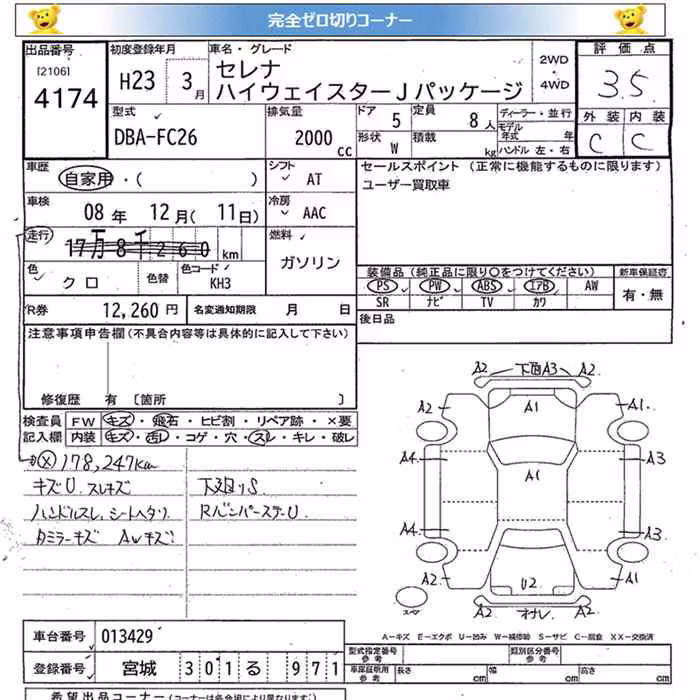 完全ゼロ切りコーナー
出品番号 初度登録年月 車名・グレード 2WD 評価点
[2106] H23 3月 セレナ 4WD 3.5
4174 ハイウェイスターJパッケージ
型式 排気量 ドア 5 定員 8人 ディーラー・並行 外装 内装
DBA-FC26 2000cc 形状 W 積載 kg モデル年式 年 C C
ハンドル 左・右
車歴 シフト セールスポイント (正常に機能するものに限ります)
自家用・( ) AT ユーザー買取車
車検 冷房
08年 12月(11日) AAC
走行 燃料
17万8千260 km ガソリン
色 クロ 色替 色コード KH3 装備品(純正品に限り○をつけてください) 新車保証書
PS PW ABS エアB AW 有・無
SR ナビ TV カワ
R券 12,260円 名変通知期限 月 日 後日品
注意事項申告欄(不具合内容等は具体的に記入して下さい)
修復歴 有 〔箇所 〕
検査員 FW キズ・飛石・ヒビ割・リペア跡・×要
記入欄 内装 キズ・汚レ・コゲ・穴・スレ・キレ・破レ
178,247km
キズU.スレキズ 下廻りS
ハンドルスレ,シートヘタリ. RバンパーステーU
AWキズ
A2 下回A3 A2
A2 A1 A1
A4 A1 A3
A4 A3
A2 U2 A1
スペア A2 A2
A-キズ E-エクボ U-凹み W-補修跡 S-サビ C-腐食 XX-交換済
車台番号 013429 型式指定番号 参考 類別区分番号 参考
登録番号 宮城 301 る 971 車庫証明用 参考 長さ cm 幅 cm 高さ cm
希望出品コーナー